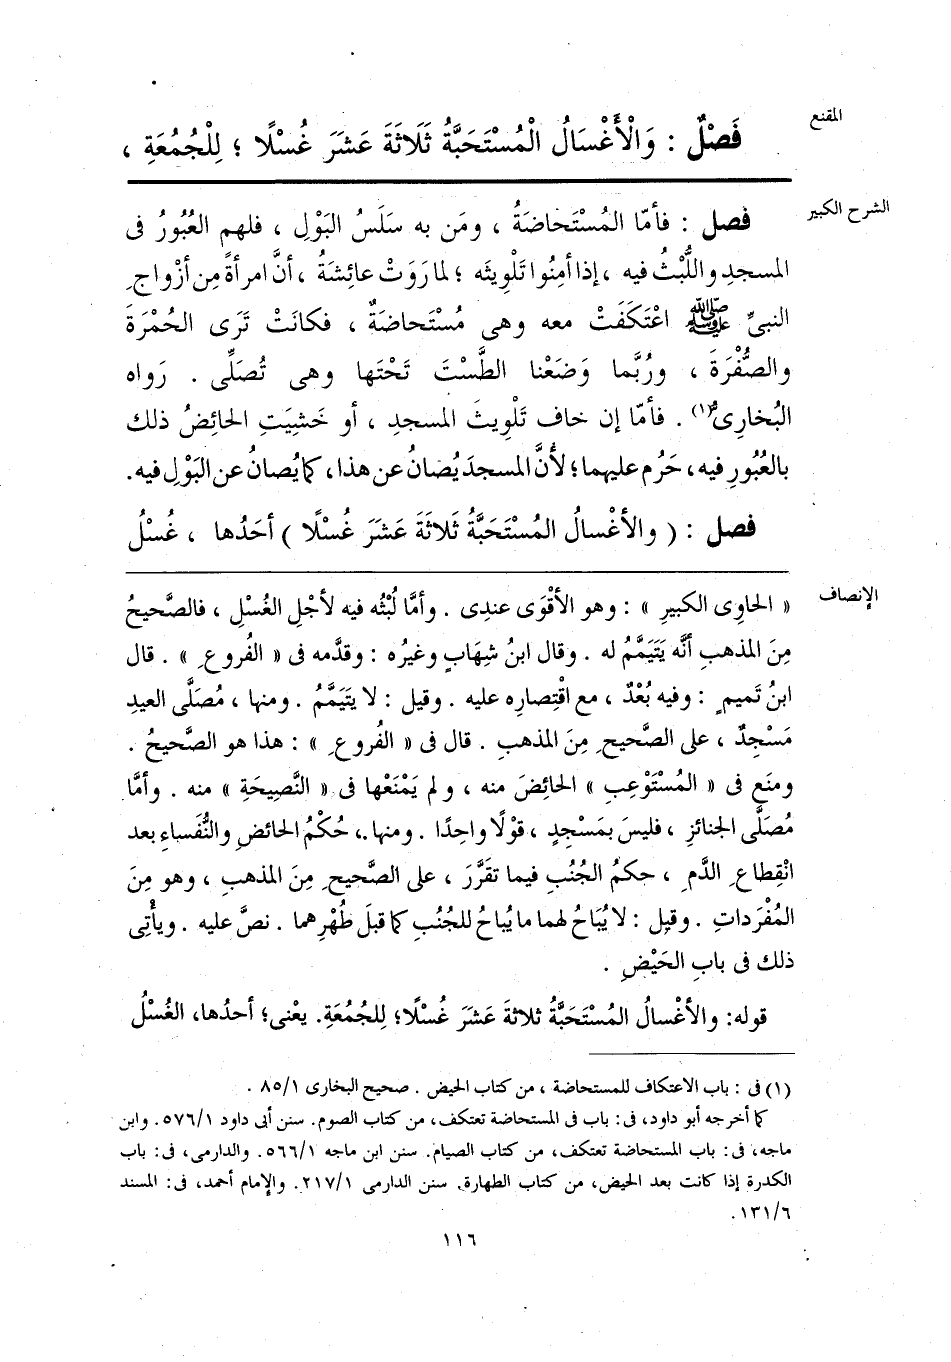 المقنع
فَصْلٌ : وَالْأَغْسَالُ الْمُسْتَحَبَّةُ ثَلَاثَةَ عَشَرَ غُسْلًا ؛ لِلْجُمُعَةِ ،
الشرح الكبير
فصل : فأمّا المُسْتَحاضَةُ ، ومَن به سَلَسُ البَوْلِ ، فلهم العُبُورُ فى
المسجدِ واللُّبْثُ فيه ، إذا أمِنُوا تَلْوِيثَه ؛ لما رَوَتْ عائِشةُ ، أنَّ امرأةً مِن أزْواجِ
النبىِّ ﷺ اعْتَكَفَتْ معه وهى مُسْتَحاضَةٌ ، فكانَتْ تَرَى الحُمْرَةَ
والصُّفْرَةَ ، ورُبَّما وَضَعْنا الطَّسْتَ تَحْتَها وهى تُصَلِّى . رَواه
البُخارِىُّ(١) . فأمّا إن خاف تَلْوِيثَ المسجدِ ، أو خَشِيَتِ الحائِضُ ذلك
بالعُبُورِ فيه، حَرُم عليهما؛ لأنَّ المسجدَ يُصَانُ عن هذا، كما يُصانُ عن البَوْلِ فيه.
فصل : ( والأغْسالُ المُسْتَحَبَّةُ ثَلاثَةَ عَشَرَ غُسْلًا ) أحَدُها ، غُسْلُ
الإنصاف
« الحاوِى الكبيرِ » : وهو الأقْوَى عندِى . وأمَّا لُبْثُه فيه لأجْلِ الغُسْلِ ، فالصَّحيحُ
مِنَ المذهبِ أنَّه يَتَيَمَّمُ له . وقال ابنُ شِهَابٍ وغيرُه : وقدَّمه فى « الفُروعِ » . قال
ابنُ تَميمٍ : وفيه بُعْدٌ ، مع اقْتِصارِه عليه . وقيل : لا يَتَيَمَّمُ . ومنها ، مُصَلَّى العيدِ
مَسْجِدٌ ، على الصَّحيحِ مِنَ المذهبِ . قال فى « الفُروعِ » : هذا هو الصَّحيحُ .
ومنَع فى « المُسْتَوْعِبِ » الحائِضَ منه ، ولم يَمْنَعْها فى « النَّصِيحَةِ » منه . وأمَّا
مُصَلَّى الجنائزِ ، فليسَ بمَسْجِدٍ ، قوْلًا واحِدًا . ومنها ، حُكْمُ الحائضِ والنُّفَساءِ بعد
انْقِطاعِ الدَّمِ ، حكمُ الجُنُبِ فيما تقَرَّرَ ، على الصَّحيحِ مِنَ المذهبِ ، وهو مِنَ
المُفْرَداتِ . وقيل : لا يُبَاحُ لهما ما يُباحُ للجُنُبِ كما قبلَ طُهْرِهما . نصَّ عليه . ويأْتِى
ذلك فى بابِ الحَيْضِ .
قوله: والأغْسالُ المُسْتَحَبَّةُ ثلاثةَ عَشَرَ غُسْلًا؛ للجُمُعَةِ. يعْنى؛ أحدُها، الغُسْلُ
(١) فى : باب الاعتكاف للمستحاضة ، من كتاب الحيض . صحيح البخارى ٨٥/١ .
كما أخرجه أبو داود، فى: باب فى المستحاضة تعتكف، من كتاب الصوم. سنن أبى داود ٥٧٦/١. وابن
ماجه، فى: باب المستحاضة تعتكف، من كتاب الصيام. سنن ابن ماجه ٥٦٦/١. والدارمى، فى: باب
الكدرة إذا كانت بعد الحيض، من كتاب الطهارة. سنن الدارمى ٢١٧/١. والإمام أحمد، فى: المسند
١٣١/٦.
١١٦